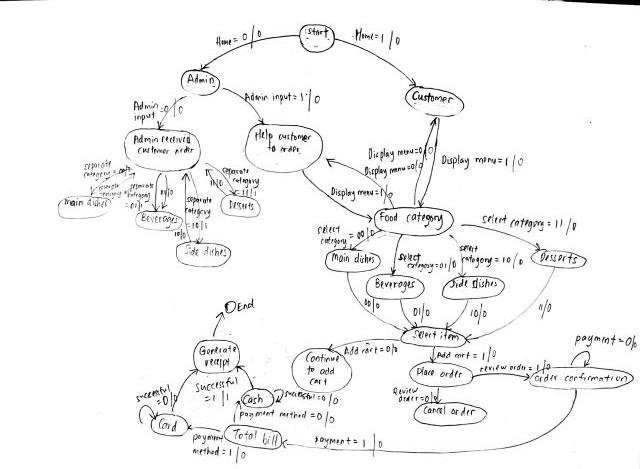 start
Home = 0/0
Home = 1/0
Admin
Customer
Admin input = 0/0
Admin input = 1/0
Admin received
customer order
Help customer
to order
Display menu = 0/0
Display menu = 1/0
Display menu = 1/0
separate
category
separate
category
= 01/1
separate
category
= 10/1
separate
category
= 11/1
01/0
10/0
11/0
main dishes
Beverages
Side dishes
Deserts
Food category
select
category = 00/0
select
category = 01/0
select
category = 10/0
select category = 11/0
Main dishes
Beverages
Side dishes
Desserts
00/0
01/0
10/0
11/0
Select item
Add cart = 0/0
Add cart = 1/0
Continue
to add
cart
Place order
review order = 1/0
Review
order = 0/0
Cancel order
order confirmation
payment = 0/0
payment = 1/0
Total bill
payment method = 0/0
payment
method = 1/0
Cash
Card
successful = 0/0
successful
= 0/0
Successful
= 1/1
Generate
receipt
End